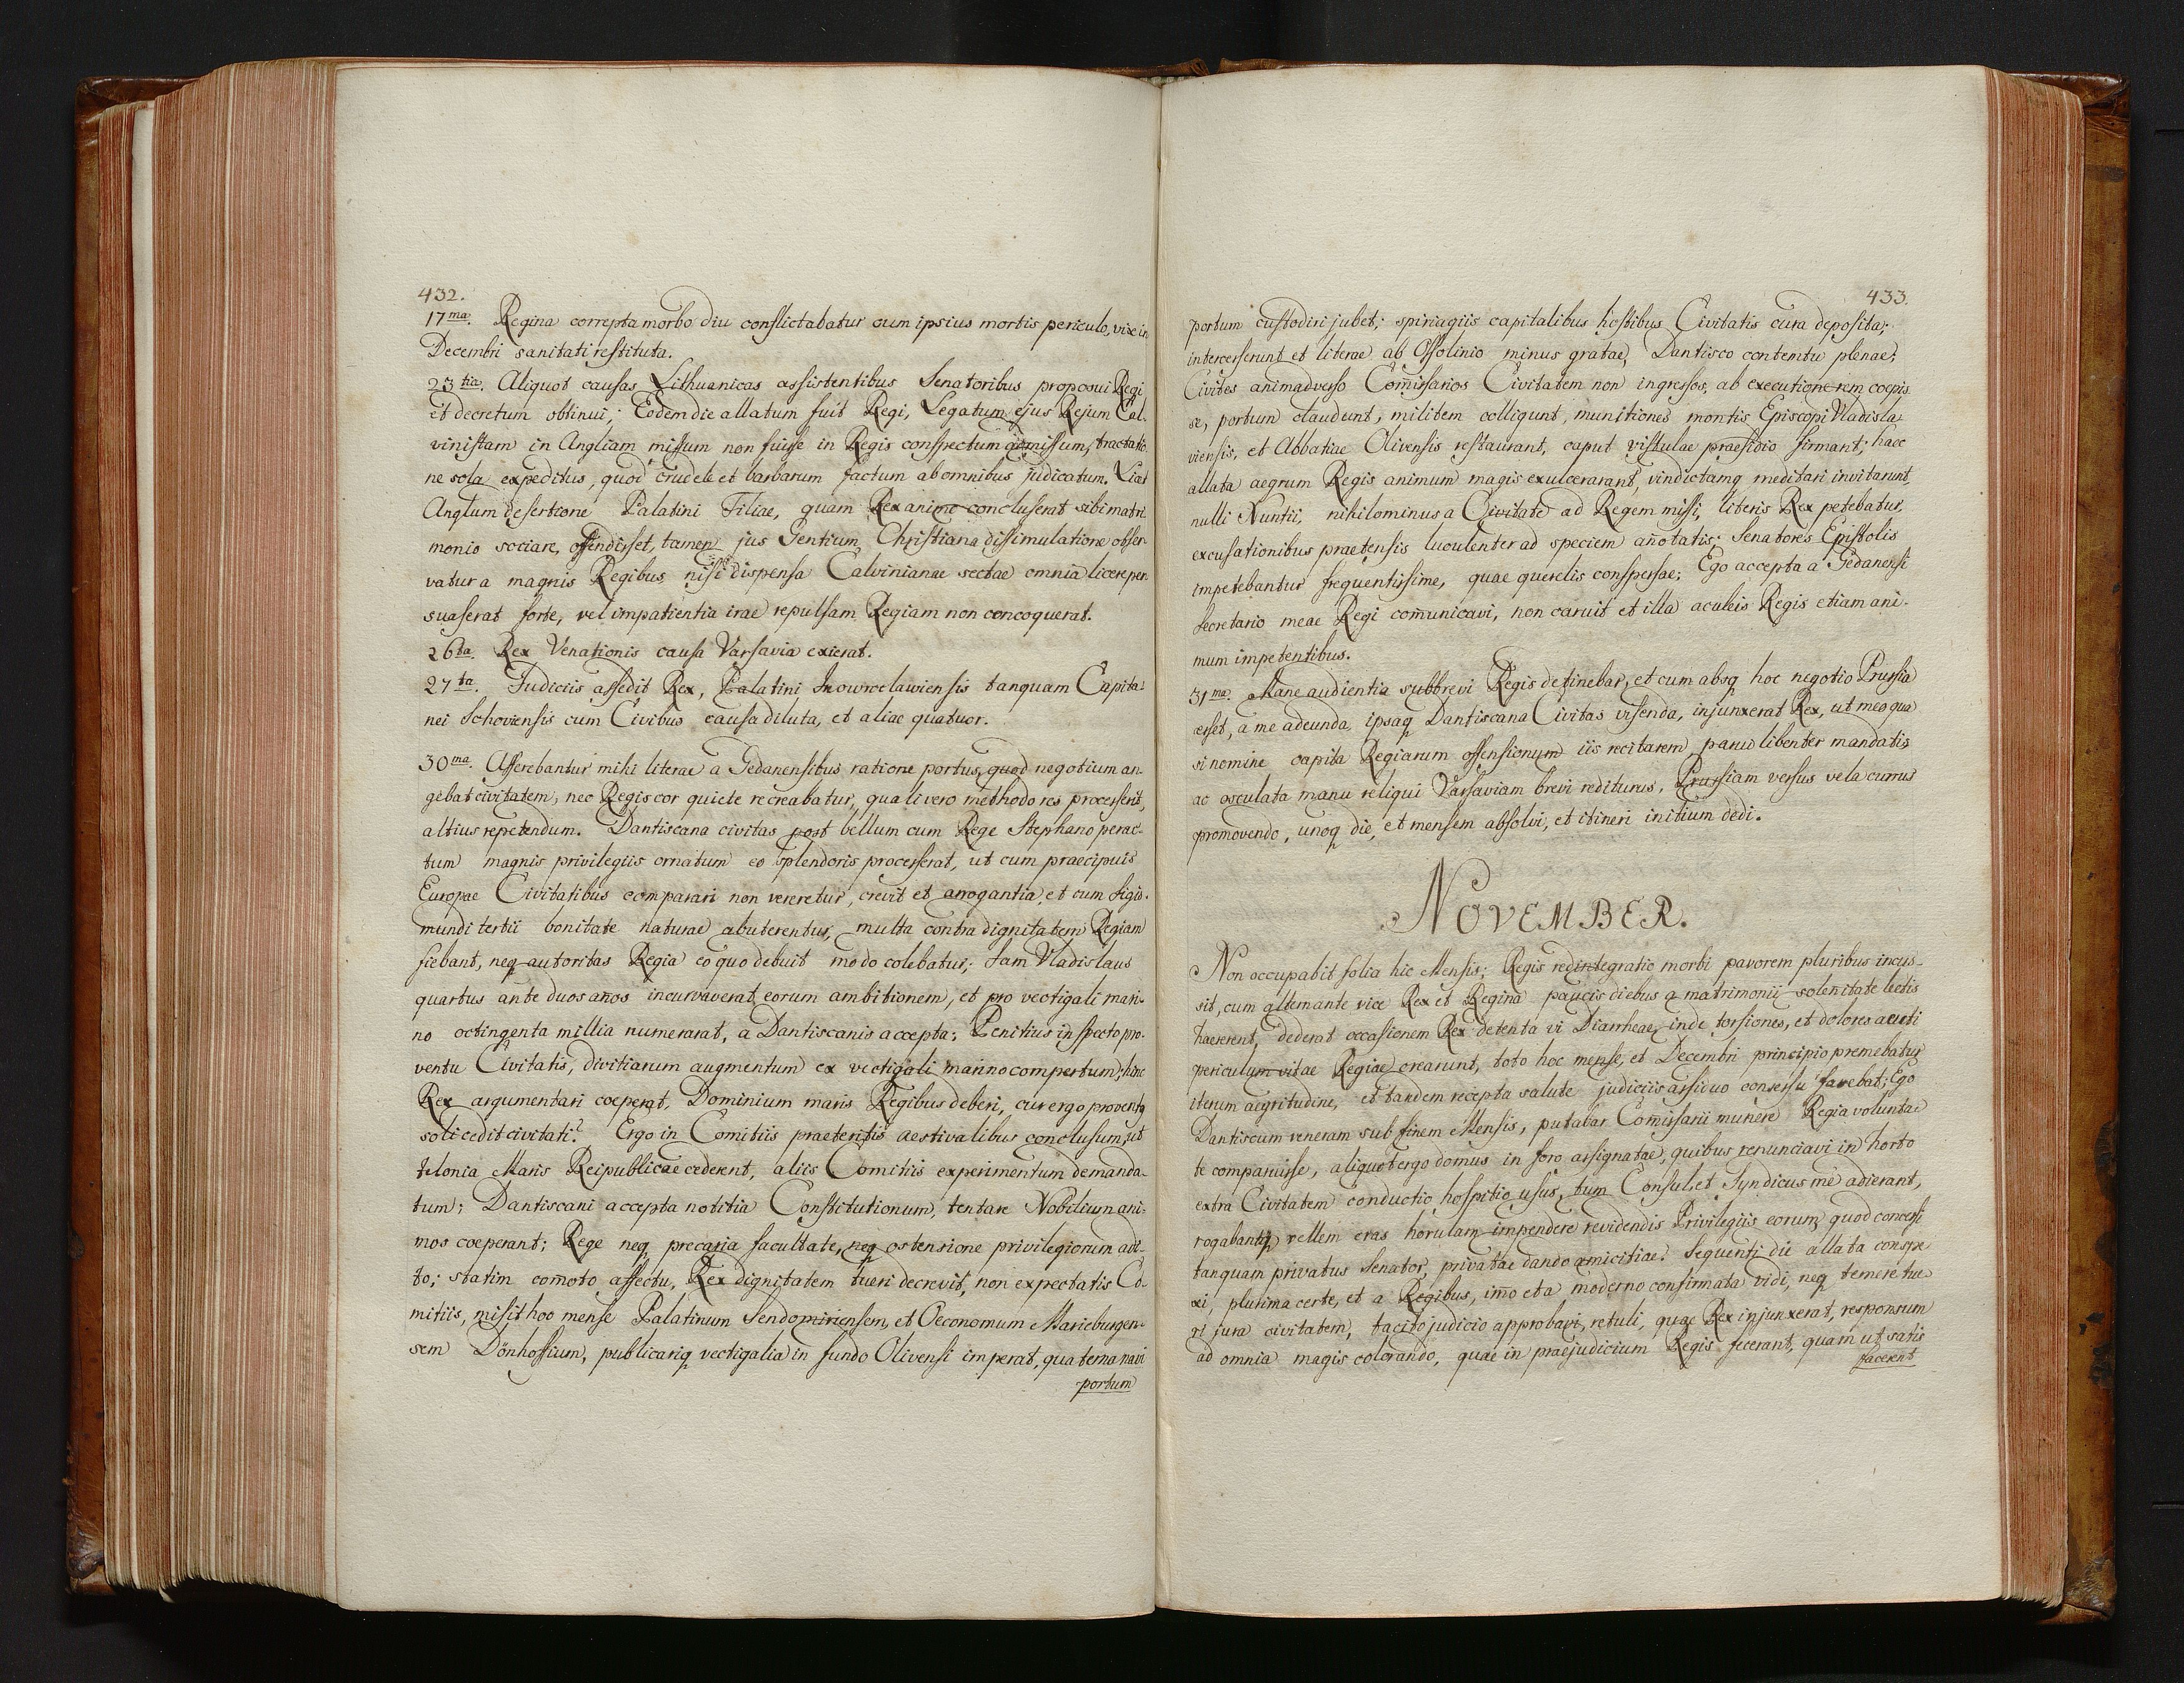 432.
17ma. Regina correpta morbo diu conflictabatur cum ipsius mortis periculo, vix in
Decembri sanitati restituta.
23tia. Aliquot causas Lithuanicas assistentibus Senatoribus proposui Regi
et decretum obtinui; Eodem die allatum fuit Regi, Legatum ejus Rejum Cal-
vinistam in Angliam missum non fuisse in Regis conspectum admissum, tractatio
ne sola expeditus, quod crudele et barbarum factum ab omnibus judicatum. Licet
Anglum desertione Palatini Filiae, quam Rex animo concluserat sibi matri
monio sociare, offendisset, tamen jus Gentium Christiana dissimulatione obser-
vatur a magnis Regibus, nisi dispensa Calvinianae sectae omnia licere per
suaserat forte, vel impatientia irae repulsam Regiam non concoquerat.
26ta. Rex Venationis causa Varsavia exierat.
27ta. Judiciis assedit Rex, Palatini Inowroclawiensis tanquam Capita-
nei Schoviensis cum Civibus causa diluta, et aliae quatuor.
30ma. Afferebantur mihi literae a Gedanensibus ratione portus, quod negotium an-
gebat civitatem, nec Regis cor quiete recreabatur, quali vero methodo res processerit,
altius repetendum. Dantiscana civitas post bellum cum Rege Stephano perac-
tum magnis privilegiis ornatum eo splendoris processerat, ut cum praecipuis
Europae Civitatibus comparari non vereretur, crevit et arrogantia, et cum Sigis-
mundi tertii bonitate naturae abuterentur, multa contra dignitatem Regiam
fiebant, neq autoritas Regia eo quo debuit modo colebatur; Iam Vladislaus
quartus ante duos an̄os incurvaverat eorum ambitionem, et pro vectigali mari-
no octingenta millia numerarat, a Dantiscanis accepta; Penitius inspecto pro-
ventu Civitatis, divitiarum augmentum ex vectigali marino compertum; hinc
Rex argumentari coeperat, Dominium maris Regibus deberi, cur ergo proventus
soli cedit civitati? Ergo in Comitiis praeteritis aestivalibus conclusum, ut
telonia Maris Reipublicae cederent, aliis Comitiis experimentum demanda-
tum; Dantiscani accepta notitia Constitutionum, tentare Nobilium ani-
mos coeperant; Rege neq precaria facultate, neq ostensione privilegiorum adi-
to; statim com̄oto affectu, Rex dignitatem tueri decrevit, non expectatis Co-
mitiis, misit hoc mense Palatinum Sendomiriensem, et Oeconomum Marieburgen-
sem Dönhoffium, publicariq vectigalia in fundo Olivensi imperat, quaterna navi
portum
433.
portum custodiri jubet; spiriagiis capitalibus hostibus Civitatis cura deposita;
intercesserunt et literae ab Ossolinio minus gratae, Dantisco contemtu plenae;
Civites animadverso Com̄issarios Civitatem non ingressos, ab executione rem coepis
se, portum claudunt, militem colligunt, munitiones montis Episcopi Vladisla-
viensis, et Abbatiae Olivensis restaurant, caput vistulae praesidio firmant; haec
allata aegrum Regis animum magis exulcerarant, vindictamq meditari invitarunt,
nulli Nuntii, nihilominus a Civitate ad Regem missi, literis Rex petebatur,
excusationibus praetensis luculenter ad speciem an̄otatis; Senatores Epistolis
impetebantur frequentissime, quae querelis conspersae; Ego accepta a Gedanensi
Secretario meae Regi com̄unicavi, non caruit et illa aculeis Regis etiam ani-
mum impetentibus.
31ma. Mane audientia subbrevi Regis detinebar, et cum absq hoc negotio Prussia
esset, a me adeunda, ipsaq Dantiscana Civitas visenda, injunxerat Rex, ut meo qua
si nomine capita Regiarum offensionum iis recitarem, parui libenter mandatis
ac osculata manu reliqui Varsaviam brevi rediturus, Prussiam versus vela currus
promovendo, unoq die, et mensem absolvi, et itineri initium dedi.
NOVEMBER.
Non occupabit folia hic Mensis; Regis redintegratio morbi pavorem pluribus incus-
sit, cum alternante vice Rex et Regina paucis diebus a matrimonii solen̄itate lectis
haererent, dederat occasionem Rex detenta vi Diarrheae, inde torsiones, et dolores acuti
periculum vitae Regiae crearunt, toto hoc mense, et Decembri principio premebatur
iterum aegritudine, et tandem recepta salute judiciis assiduo consessu favebat; Ego
Dantiscum veneram sub finem Mensis, putabar Com̄issarii munere Regia volunta-
te comparuisse, aliquot ergo domus in foro assignatae, quibus renunciavi in horto
extra Civitatem conductio hospitio usus, tum Consul, et Syndicus me adierant,
rogabantq vellem cras horulam impendere revidendis Privilegiis eorum, quod concessi
tanquam privatus Senator, privatae dando amicitiae. Sequenti die allata conspe
xi, plurima certe, et a Regibus, im̄o et a moderno confirmata vidi, neq temere tue-
ri jura civitatem, tacito judicio approbavi, retuli, quae Rex injunxerat, responsum
ad omnia magis colorando, quae in praejudicium Regis fecerant, quam ut satis
facerent